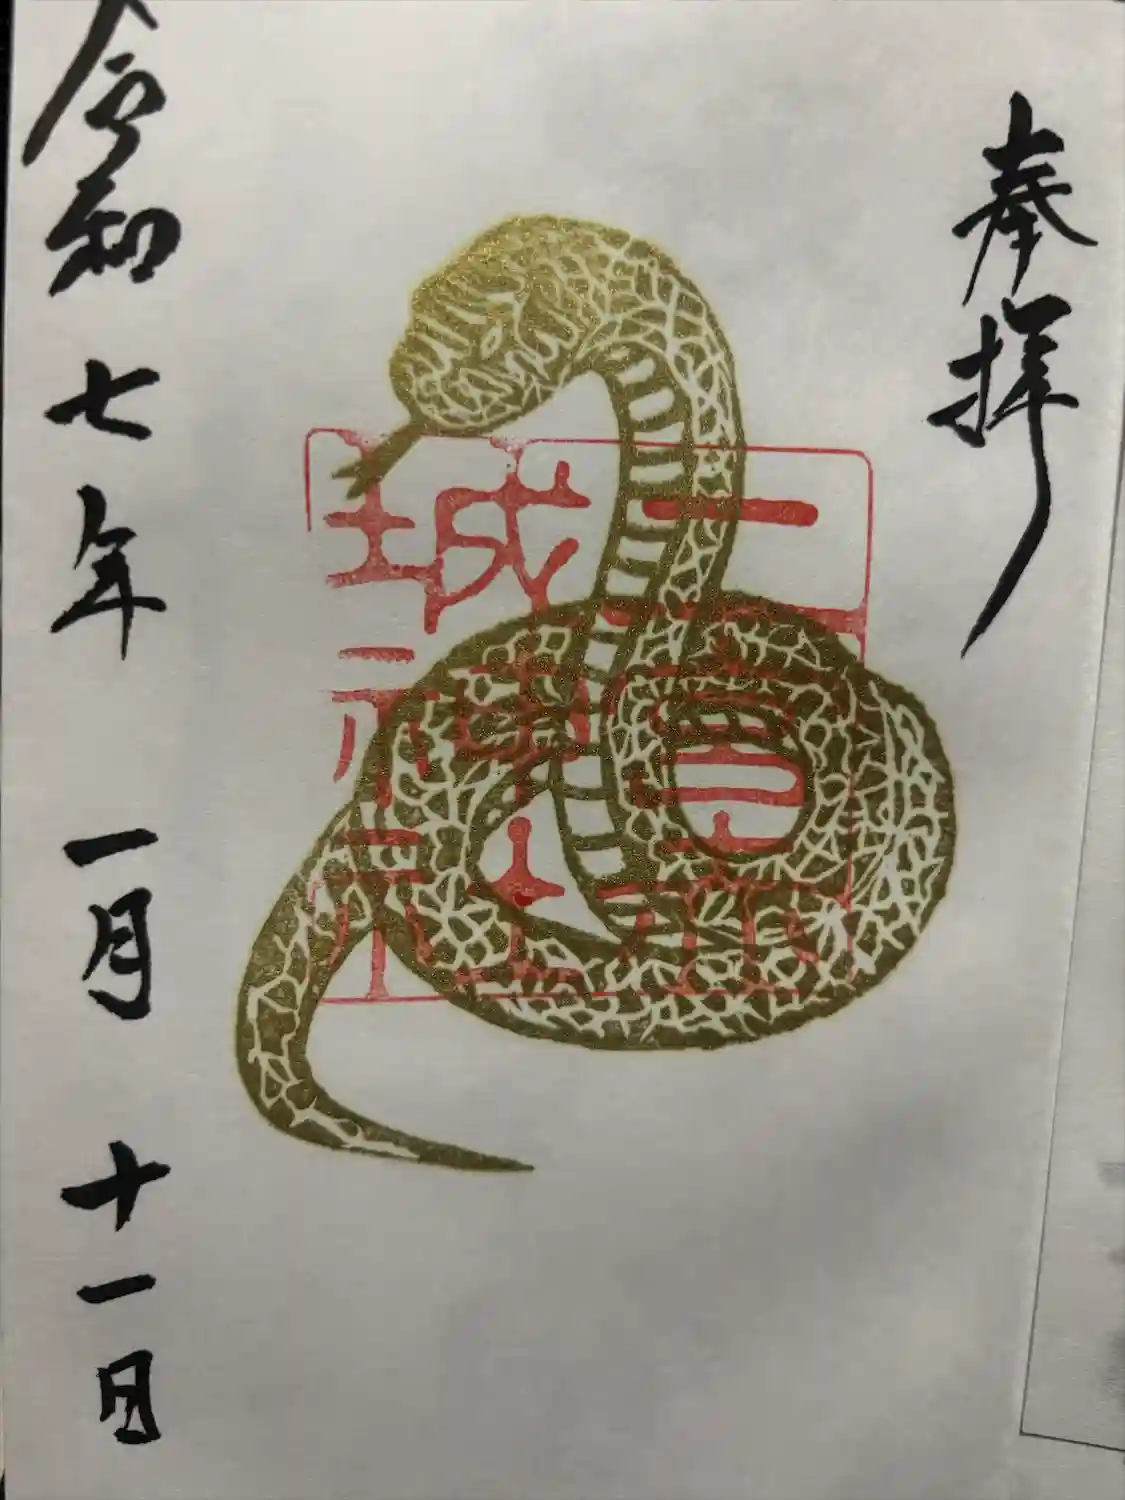 奉拝
二宮赤
城神社
令和七年一月十一日